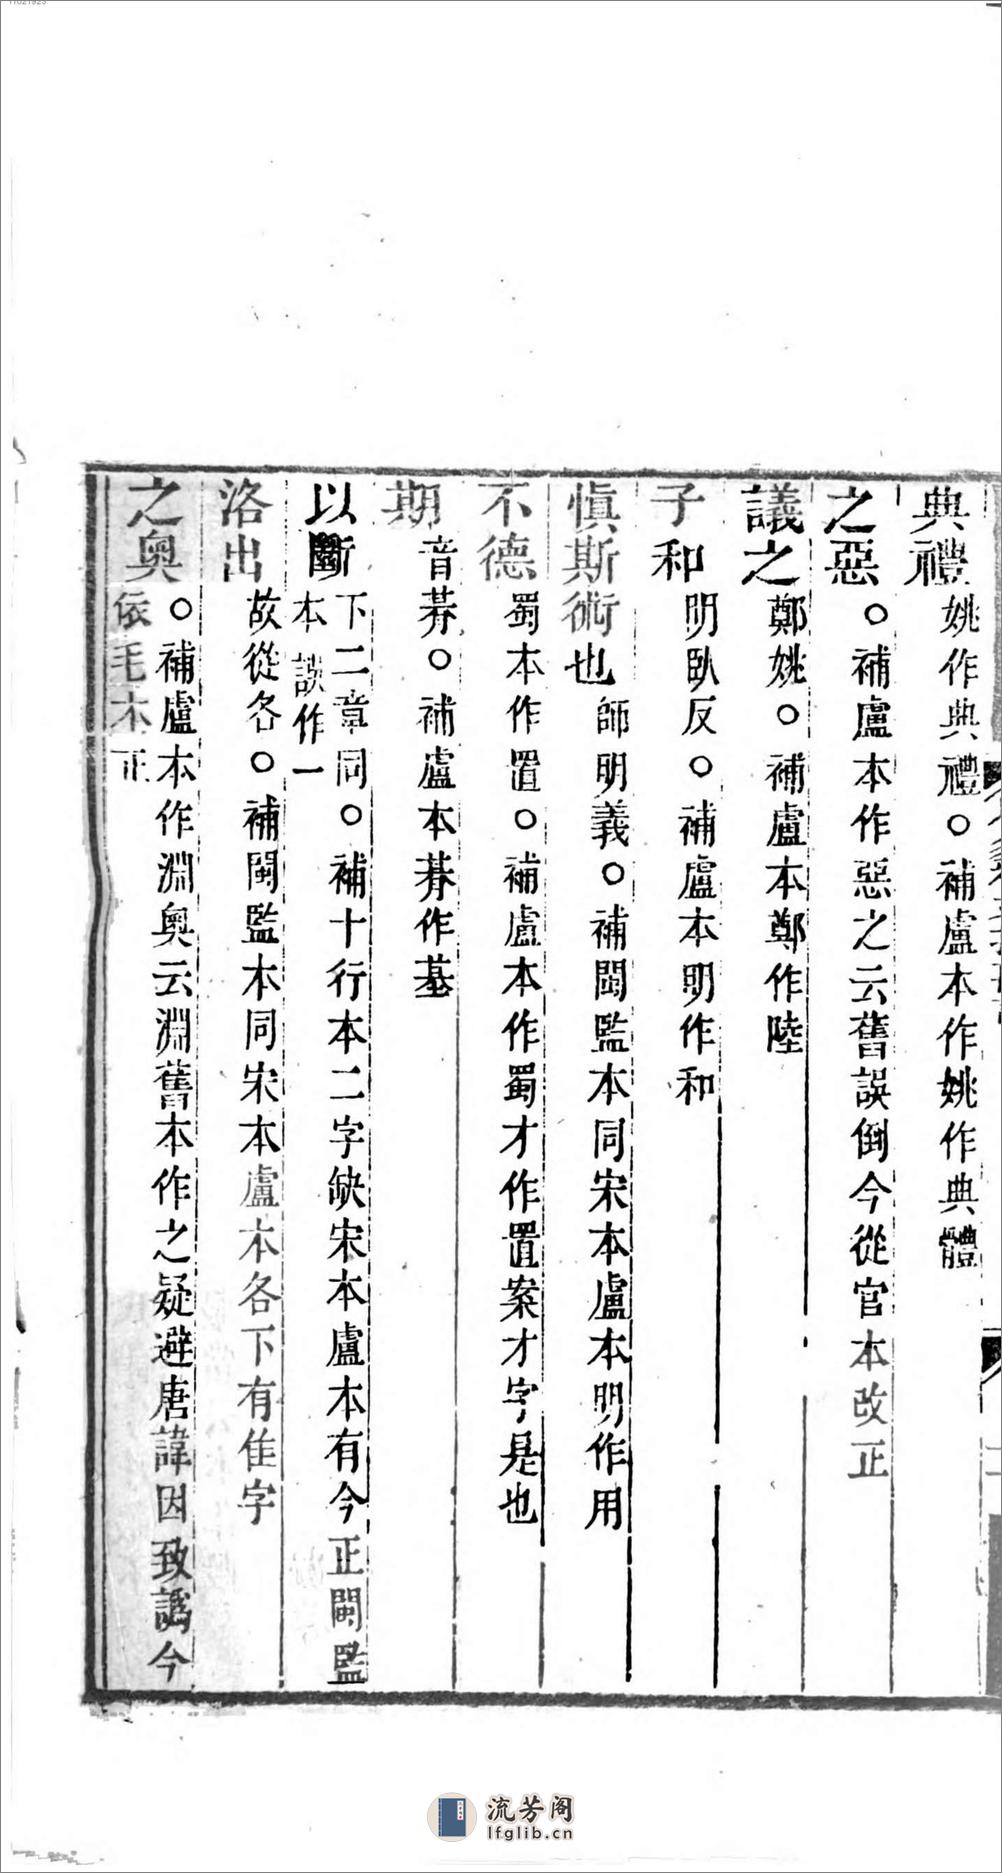 11021923
典禮姚作典禮○補盧本作姚作典體
之惡○補盧本作惡之云舊誤倒今從官本改正
議之鄭姚○補盧本鄭作陸
子和明臥反○補盧本明作和
慎斯術也師明義○補閩監本同宋本盧本明作用
不德蜀本作置○補盧本作蜀才作置案才字是也
期音朞○補盧本朞作基
以斷下二章同○補十行本二字缺宋本盧本有今正閩監
本誤作一
洛出故從各○補閩監本同宋本盧本各下有隹字
之奥○補盧本作淵奥云淵舊本作之疑避唐諱因致譌今
依毛本正
流芳阁
lfglib.cn